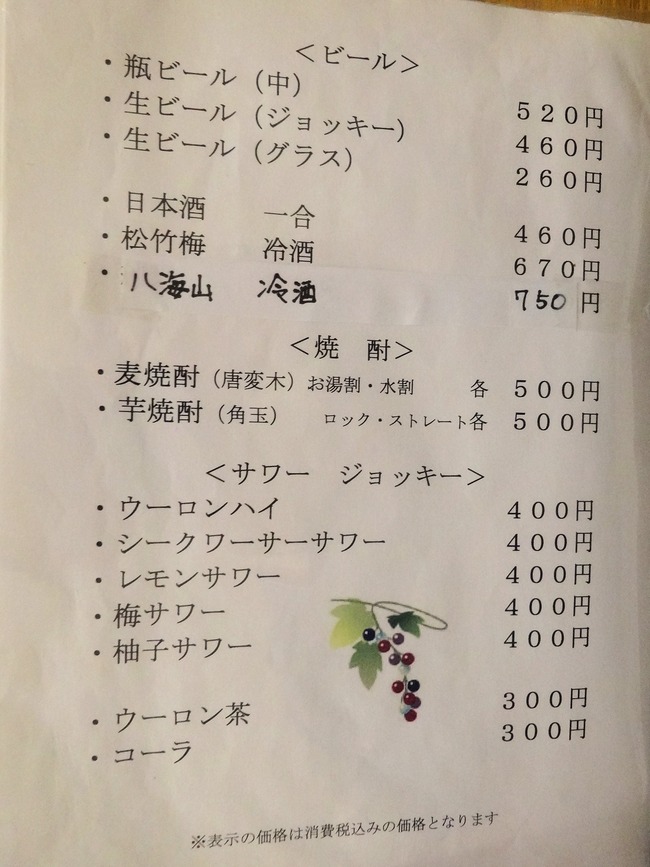 ＜ビール＞
・瓶ビール（中） ５２０円
・生ビール（ジョッキー） ４６０円
・生ビール（グラス） ２６０円
・日本酒　一合 ４６０円
・松竹梅　冷酒 ６７０円
・八海山　冷酒 750円
＜焼　酎＞
・麦焼酎（唐変木）お湯割・水割　各　５００円
・芋焼酎（角玉）　ロック・ストレート各　５００円
＜サワー　ジョッキー＞
・ウーロンハイ ４００円
・シークワーサーサワー ４００円
・レモンサワー ４００円
・梅サワー ４００円
・柚子サワー ４００円
・ウーロン茶 ３００円
・コーラ ３００円
※表示の価格は消費税込みの価格となります